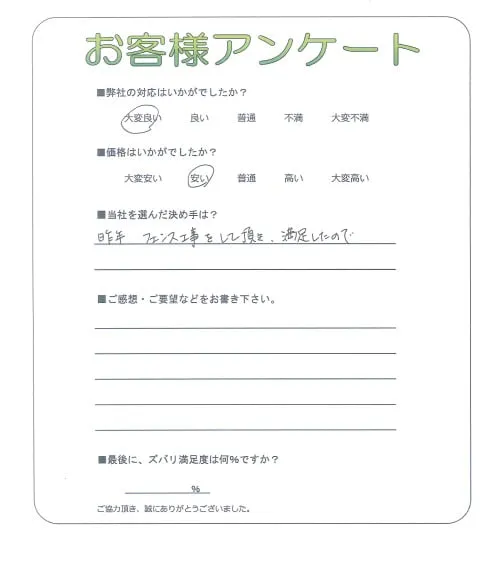 お客様アンケート
■弊社の対応はいかがでしたか？
大変良い 良い 普通 不満 大変不満
■価格はいかがでしたか？
大変安い 安い 普通 高い 大変高い
■当社を選んだ決め手は？
昨年 フェンス工事をして頂き、満足したので
■ご感想・ご要望などをお書き下さい。
■最後に、ズバリ満足度は何%ですか？
%
ご協力頂き、誠にありがとうございました。